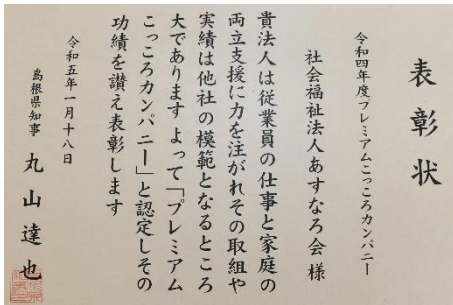 表彰状
令和四年度プレミアムこっころカンパニー
社会福祉法人あすなろ会 様
貴法人は従業員の仕事と家庭の
両立支援に力を注がれその取組や
実績は他社の模範となるところ
大であります よって「プレミアム
こっころカンパニー」と認定しその
功績を讃え表彰します
令和五年一月十八日
島根県知事 丸山達也